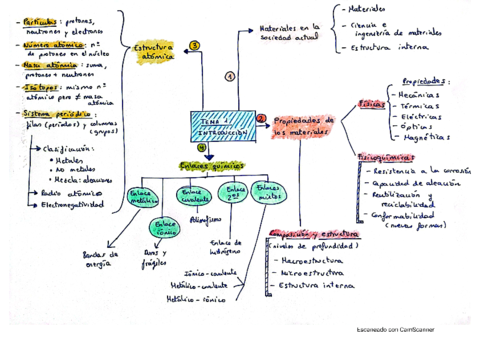 - Partículas: protones,
neutrones y electrones
- Número atómico: nº
de protones en el núcleo
- Masa atómica: suma,
protones + neutrones
- Isótopos: mismo nº
atómico pero ≠ masa
atómica
- Sistema periódico:
filas (períodos) y columnas
(grupos)
Clasificación:
• Metales
• No metales
• Mezcla: aleaciones
Radio atómico
Electronegatividad
Estructura
atómica
3
1
Materiales en la
sociedad actual
- Materiales
- Ciencia e
ingeniería de materiales
- Estructura interna
TEMA 1
INTRODUCCIÓN
2
Propiedades de
los materiales
Físicas
Propiedades:
- Mecánicas
- Térmicas
- Eléctricas
- Ópticas
- Magnéticas
Fisicoquímicas
- Resistencia a la corrosión
- Capacidad de aleación
- Reutilización y
reciclabilidad
- Conformabilidad
(nuevas formas)
Composición y estructura
(niveles de profundidad)
- Macroestructura
- Microestructura
- Estructura interna
4
Enlaces químicos
Enlace
metálico
Bandas de
energía
Enlace
iónico
Duros y
frágiles
Enlace
covalente
Enlace
Enlace de
hidrógeno
Enlaces
mixtos
Iónico-covalente
Metálico-covalente
Metálico-iónico
Escaneado con CamScanner